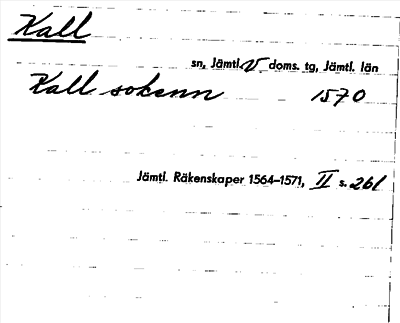 Kall
sn, Jämtl. V doms. tg, Jämtl. län
Kall sokenn 1570
Jämtl. Räkenskaper 1564–1571, II s. 261